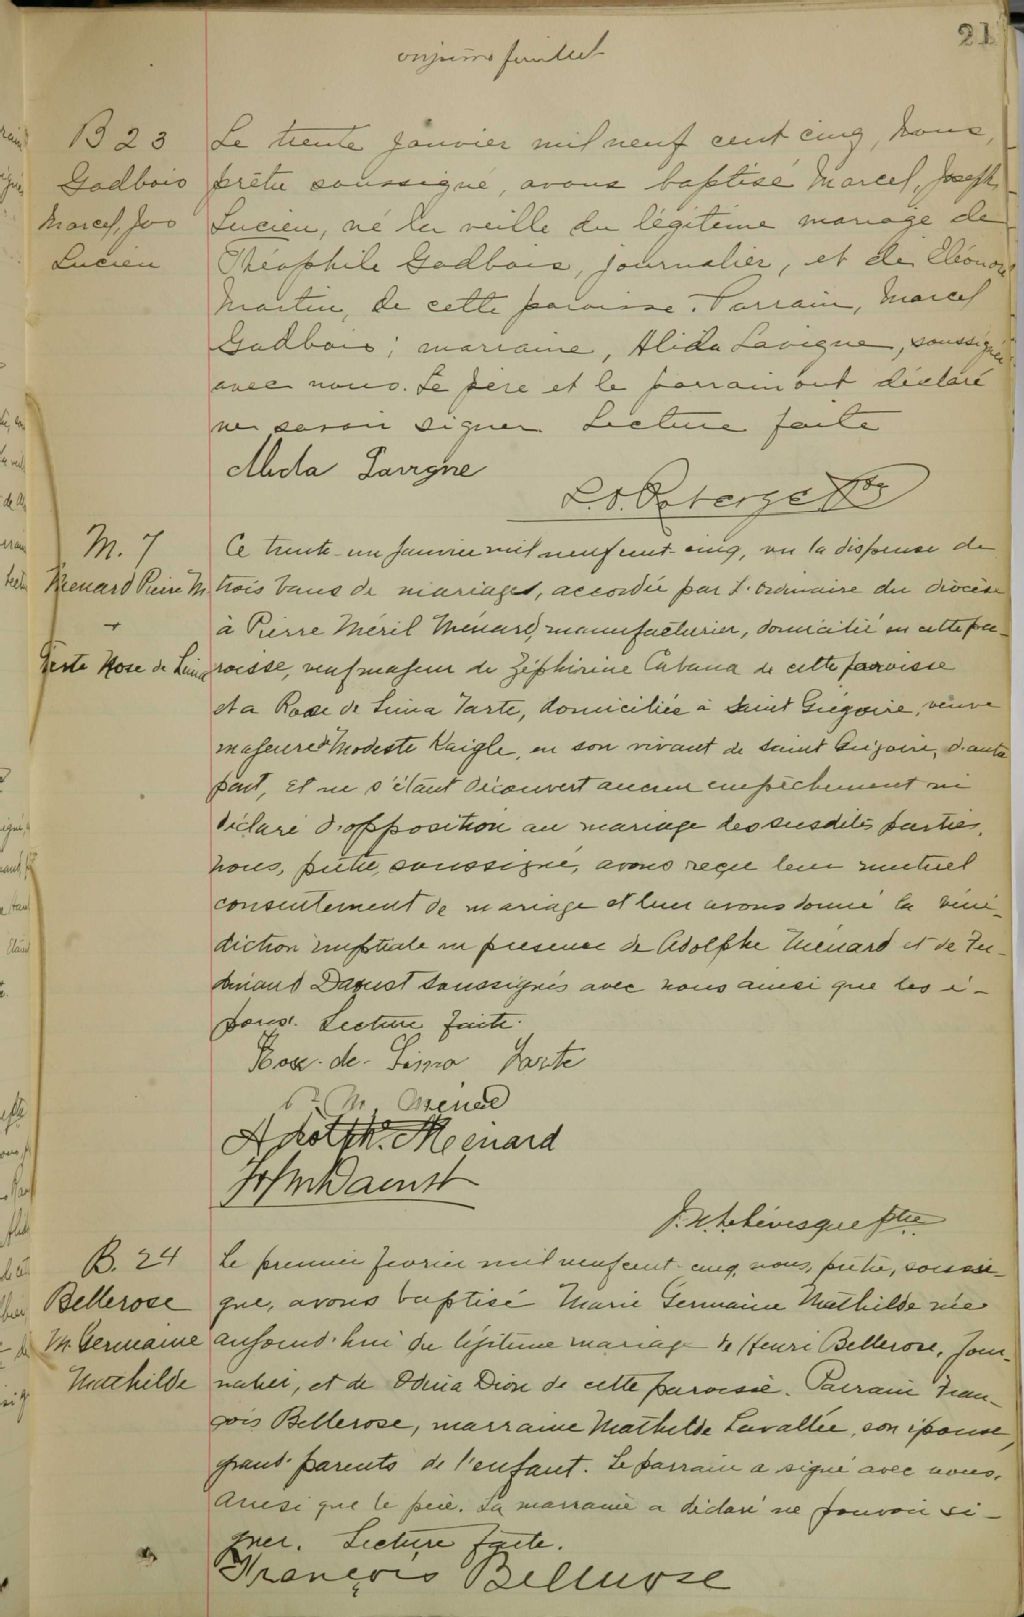 21
onzième feuillet
B 23
Godbois
Marcel, Jos
Lucien
Le trente janvier mil neuf cent cinq, Nous,
prêtre soussigné, avons baptisé Marcel, Joseph
Lucien, né la veille du légitime mariage de
Théophile Godbois, journalier, et de Eléonore
Martin, de cette paroisse. Parrain, Marcel
Godbois; marraine, Alida Lavigne, soussignée
avec nous. Le père et le parrain ont déclaré
ne savoir signer. Lecture faite
Alida Lavigne
L.O. Roberge Ptre
M. 7
Ménard Pierre M.
+
Tarte Rose de Lima
Ce trente-un janvier mil neuf cent-cinq, vu la dispense de
trois bans de mariages, accordée par l'ordinaire du diocèse
à Pierre Méril Ménard, manufacturier, domicilié en cette pa-
roisse, veuf majeur de Zéphirine Cabana de cette paroisse
et a Rose de Lima Tarte, domiciliée à Saint Grégoire, veuve
majeure de Modeste Naigle, en son vivant de Saint Grégoire, d'autre
part, et ne s'étant découvert aucun empêchement ni
déclaré d'opposition au mariage des susdites parties,
nous, prêtre, soussigné, avons reçu leur mutuel
consentement de mariage et leur avons donné la béné-
diction nuptiale en présence de Adolphe Ménard et de Fer-
dinand Daoust soussignés avec nous ainsi que les é-
poux. Lecture faite.
Rose-de-Lima Tarte
P. M. Ménard
Adolphe Ménard
Daoust
Lévesque ptre
B. 24
Bellerose
M. Germaine
Mathilde
Le premier fevrier mil neuf cent-cinq, nous, prêtre, soussi-
gné, avons baptisé Marie Germaine Mathilde née
aujourd'hui du légitime mariage de Henri Bellerose, jour-
nalier, et de Odina Dion de cette paroisse. Parrain Fran-
çois Bellerose, marraine Mathilde Lavallée, son épouse,
grand'parents de l'enfant. Le parrain a signé avec nous,
ainsi que le père. La marraine a déclaré ne pouvoir si-
gner. Lecture faite.
François Bellerose